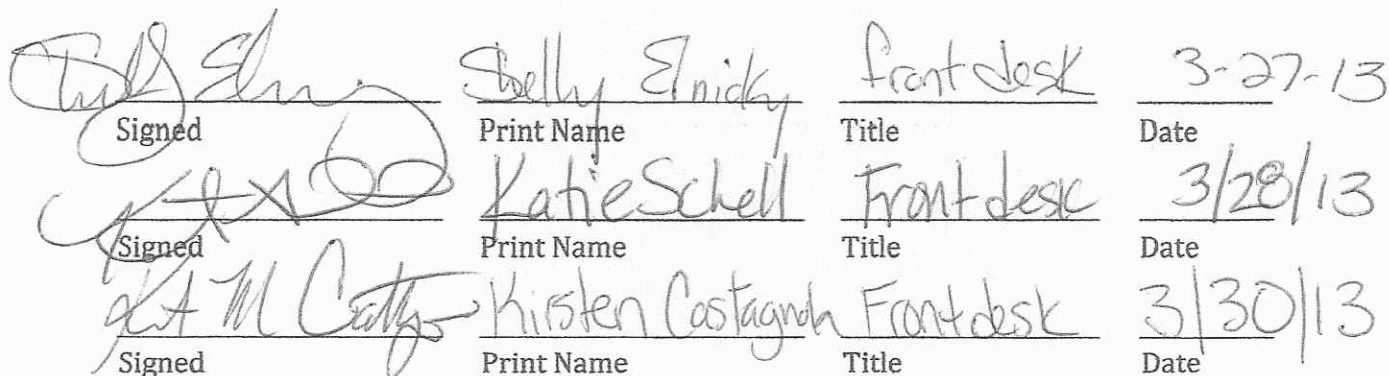 Shelly Elnicky front desk 3-27-13
Signed Print Name Title Date
Katie Schell Front desk 3/28/13
Signed Print Name Title Date
Kirsten Castagnola Front desk 3/30/13
Signed Print Name Title Date